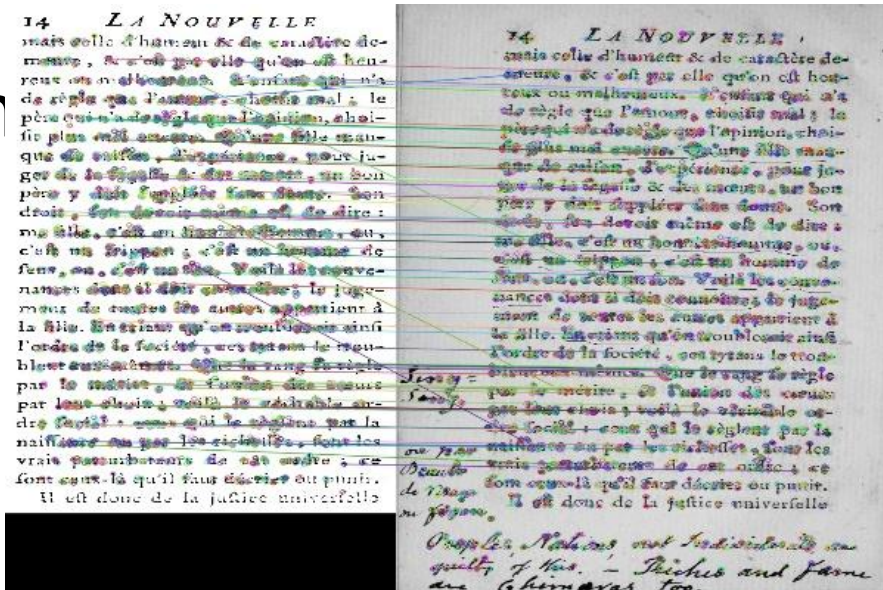 14 LA NOUVELLE
mais celle d'humeur & de caractère de-
meure, & c'eſt par elle qu'on eſt heu-
reux ou malheureux. L'enfant qui n'a
de règle que l'amour, choiſit mal ; le
père qui n'a de règle que l'opinion, choi-
ſit plus mal encore. Qu'une fille man-
que de raiſon, d'expérience, pour ju-
ger de la ſageſſe & des mœurs, un bon
père y doit ſuppléer ſans doute. Son
droit, ſon devoir même eſt de dire :
ma fille, c'eſt un honnête-homme, ou,
c'eſt un frippon ; c'eſt un homme de
ſens, ou, c'eſt un fou. Voilà les conve-
nances dont il doit connoître ; le juge-
ment de toutes les autres appartient à
la fille. En criant qu'on troubleroit ainſi
l'ordre de la ſociété, ces tyrans le trou-
blent eux-mêmes. Que le rang ſe règle
par le mérite, & l'union des cœurs
par leur choix ; voilà le véritable or-
dre ſocial : ceux qui le règlent par la
naiſſance ou par les richeſſes, ſont les
vrais perturbateurs de cet ordre ; ce
ſont ceux-là qu'il faut décrier ou punir.
Il eſt donc de la juſtice univerſelle
14 LA NOUVELLE
mais celle d'humeur & de caractère de-
meure, & c'eſt par elle qu'on eſt heu-
reux ou malheureux. L'enfant qui n'a
de règle que l'amour, choiſit mal ; le
père qui n'a de règle que l'opinion, choi-
ſit plus mal encore. Qu'une fille man-
que de raiſon, d'expérience, pour ju-
ger de la ſageſſe & des mœurs, un bon
père y doit ſuppléer ſans doute. Son
droit, ſon devoir même eſt de dire :
ma fille, c'eſt un honnête-homme, ou,
c'eſt un frippon ; c'eſt un homme de
ſens, ou, c'eſt un fou. Voilà les conve-
nances dont il doit connoître ; le juge-
ment de toutes les autres appartient à
la fille. En criant qu'on troubleroit ainſi
l'ordre de la ſociété, ces tyrans le trou-
blent eux-mêmes. Que le rang ſe règle
par le mérite, & l'union des cœurs
par leur choix ; voilà le véritable or-
dre ſocial : ceux qui le règlent par la
naiſſance ou par les richeſſes, ſont les
vrais perturbateurs de cet ordre ; ce
ſont ceux-là qu'il faut décrier ou punir.
Il eſt donc de la juſtice univerſelle
ou par
Beauté
de
ou
Nations not Individuals are
guilty of this. — Riches and fame
are Chimæras too.